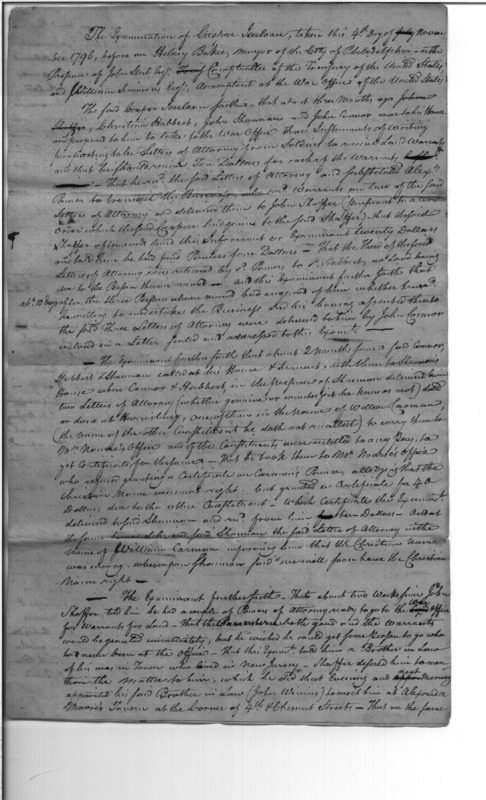 The Examination of Casper Iserloan, taken this 4th. day of Novem
ber 1796, before me Hilary Baker, mayor of the City of Philadelphia - in the
Presence of John Steel Esqr. Comptroller of the Treasury of the United States,
and William Simmons Esqr., Accomptant at the War Office of the United States,
The said Casper Iserloan saith - that about three Months ago John
Shaffer, Christian Hubbert, John Shannon and John Connor came to his House
and proposed to him to take to the War Office three Instruments of Writing
purporting to be Letters of Attorney from Soldiers to receive Land Warrants
and that he should receive Ten Dollars for each of the Warrants
- That he the said Letters of Attorney and substituted Alexr.
Power to the Business who warrants on two of the said
Letters of Attorney and delivered them to John Shaffer
order which the said Casper had given to the said Shaffer) that the said
Shaffer afterwards paid this Informant or Examinant twenty Dollars
and told him he had paid Power four Dollars - That the third of the said
Letters of Attorney were returned by sd. Power to sd. Hubbert, no land being
due to the Person therein named - and this Examinant further saith that
after the three Persons above named had enquired of him whether he was
willing to undertake the Business and his having assented thereto
the sd. three Letters of Attorney were delivered to him by John Connor
inclosed in a Letter sealed and addressed to this Examt.
- The Examinant further saith that about 2 months since the said Connor,
Hubbert & Shannon called at his House & he went with them to Shannons
House where Connor & Hubbert in the Presence of Shannon delivered him
two Letters of Attorney (whether genuine or not he knows not) dated
or done at Harrisburg, one of them in the name of William Carman,
(the name of the other Constituent he doth not recollect) to carry them to
Mr. Nourse's Office and if the Constituents were entitled to any Pay, to
get Certificates for the same - That he took them to Mr. Nourse's Office
who refused granting a Certificate on Carman's Power, alledging that the
Christian Name was not right, but granted a Certificate for 40
Dollars due to the other Constituent - which Certificate this Examinant
delivered to said Shannon and recd. from him ten Dollars - And at
the same time delivered said Shannon the said Letter of Attorney in the
name of William Carman informing him that the Christian Name
was wrong, whereupon Shannon said we will soon have the Christian
Name right -
- The Examinant further saith - That about two Weeks since John
Shaffer told him he had a couple of Powers of Attorney ready to go to the War Office
for Warrants for Land - that they were both good and the warrants
would be granted immediately, but he wished he could get some Person to go who
had never been at the Office - That this Examt. told him a Brother in Law
of his was in Town who lived in New Jersey - Shaffer desired him to men
tion the matter to him, which he did that Evening and next Morning
appointed his said Brother in Law (John Winning) to meet him at
Moore's Tavern at the Corner of 4th. & Chesnut Streets - That on the same